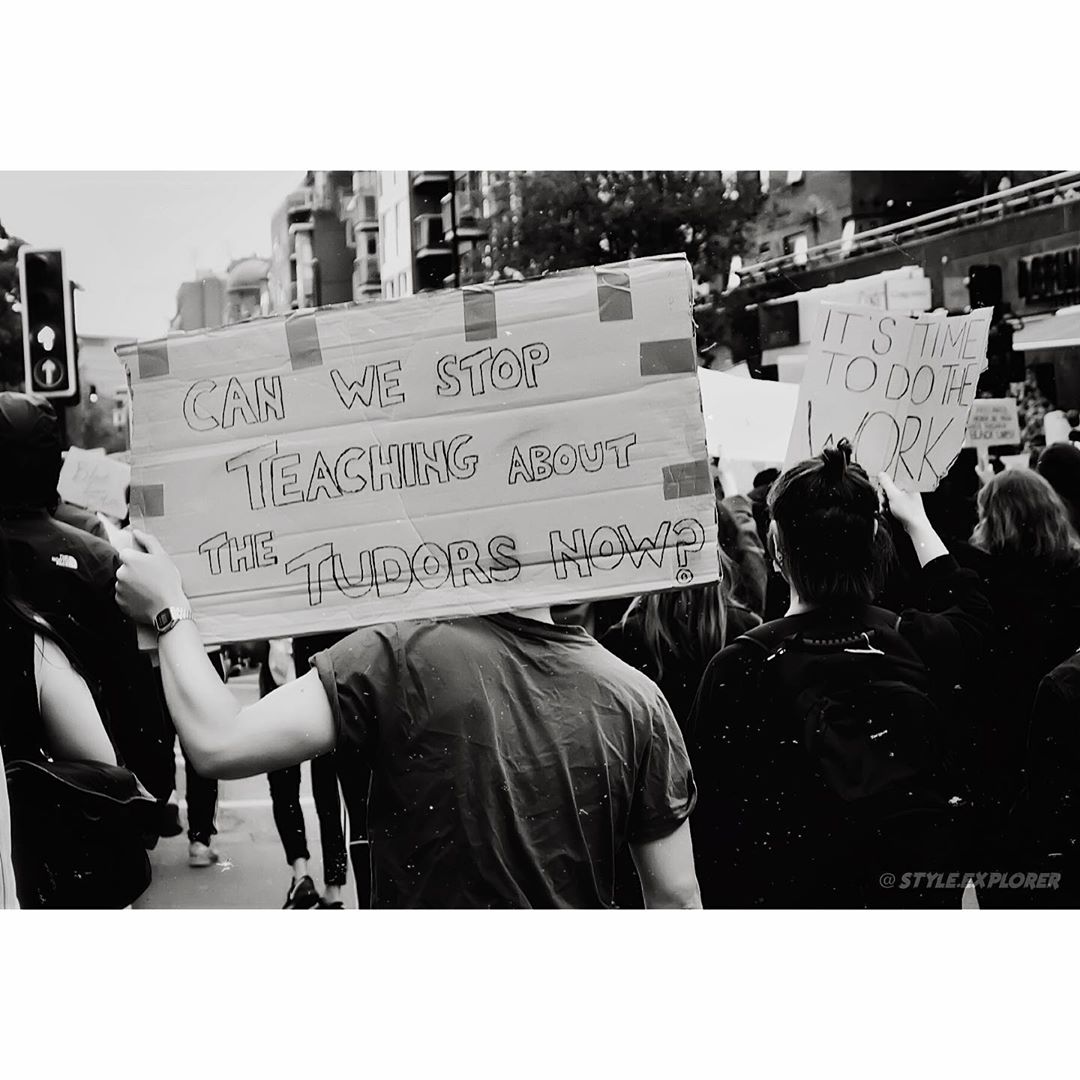 CAN WE STOP
TEACHING ABOUT
THE TUDORS NOW?
IT'S TIME
TO DO THE
WORK
BLACK LIVES
@STYLE.EXPLORER